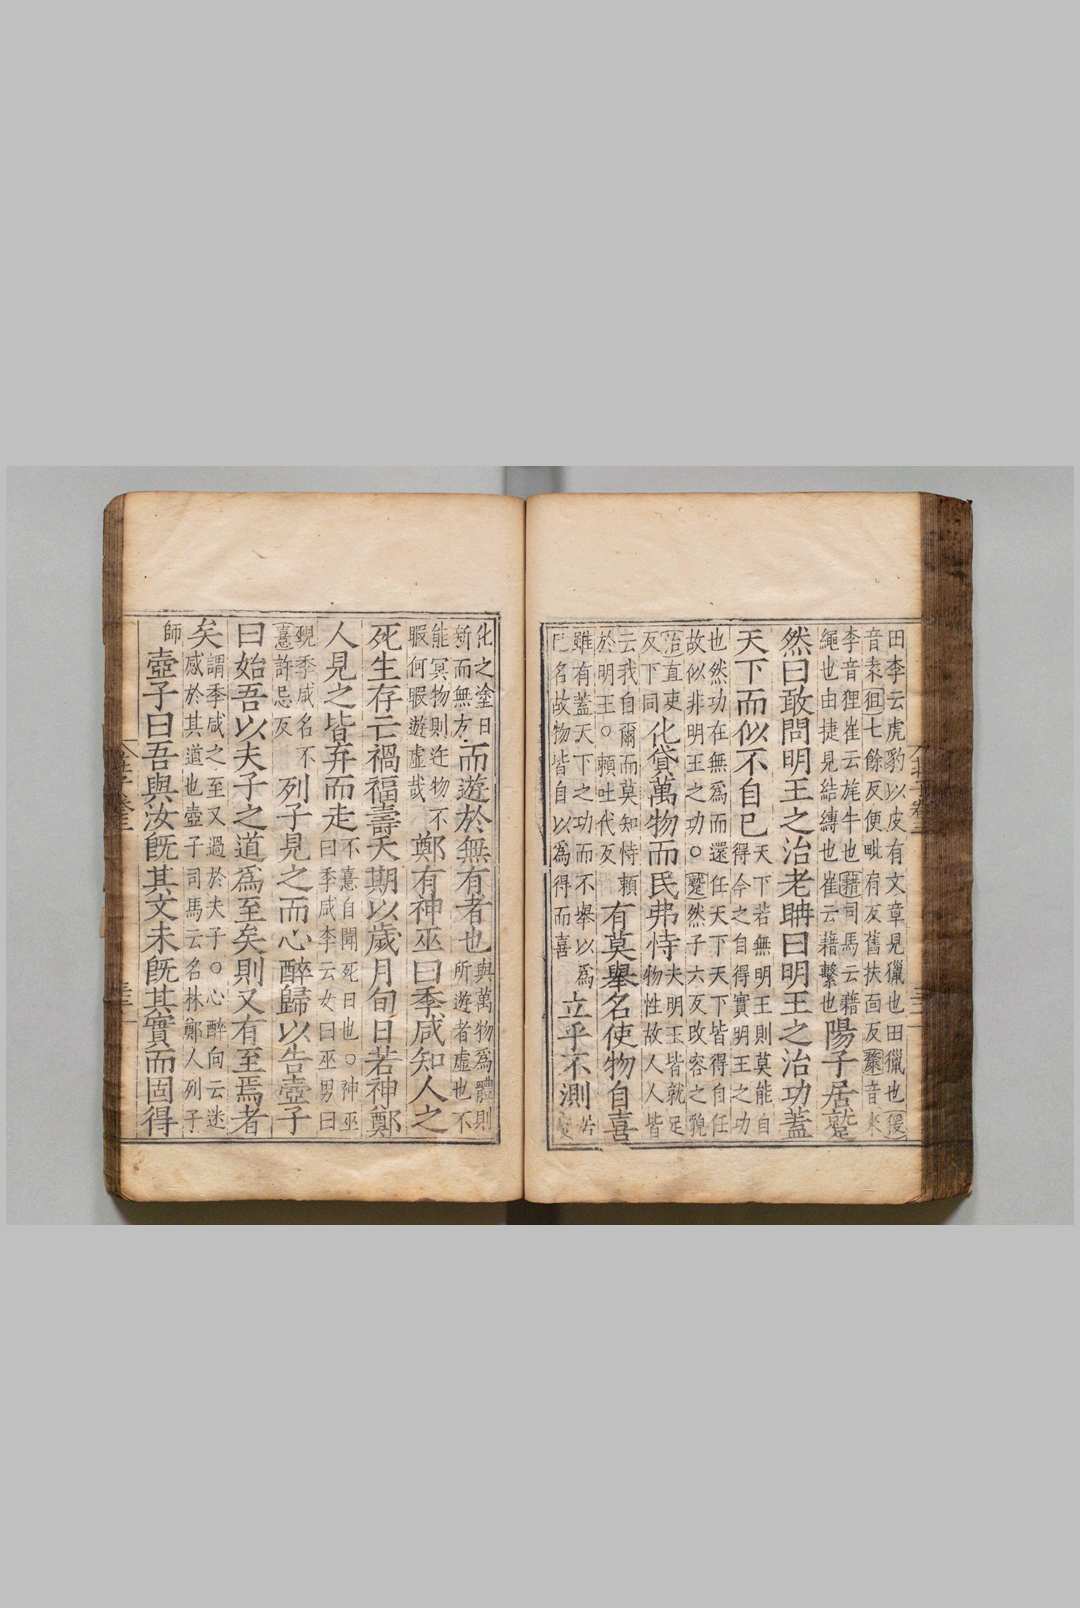 田李云虎豹以皮有文章見獵也田獵也猨
音袁狙七餘反便毗有反舊扶面反斄音來
李音狸崔云旄牛也藉司馬云藉
繩也由捷見結縛也崔云藉繫也
陽子居蹵
然曰敢問明王之治老聃曰明王之治功蓋
天下而似不自已
天下若無明王則莫能自
得令之自得實明王之功
也然功在無爲而還任天下天下皆得自任
故似非明王之功○蹵然子六反改容之貌
治直吏
反下同
化貸萬物而民弗恃
夫明王皆就足
物性故人人皆
云我自爾而莫知恃賴
於明王○賴吐代反
有莫舉名使物自喜
雖有蓋天下之功而不舉以爲
已名故物皆自以爲得而喜
立乎不測
化之塗日
新而無方
而遊於無有者也
與萬物爲體則
所遊者虛也不
能冥物則迕物不
暇何暇遊虛哉
鄭有神巫曰季咸知人之
死生存亡禍福壽夭期以歲月旬日若神鄭
人見之皆弃而走
不憙自聞死日也○神巫
曰季咸李云女曰巫男曰
覡季咸名不
憙許忌反
列子見之而心醉歸以告壺子
曰始吾以夫子之道爲至矣則又有至焉者
矣
謂季咸之至又過於夫子○心醉向云迷
惑於其道也壺子司馬云名林鄭人列子
師
壺子曰吾與汝旣其文未旣其實而固得